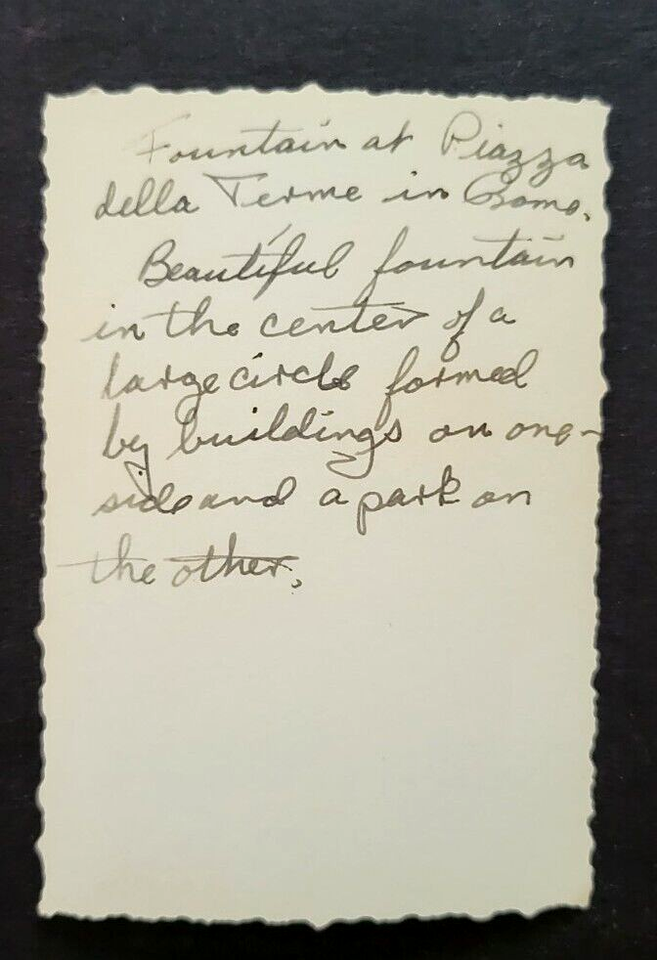 Fountain at Piazza
della Terme in Rome.
Beautiful fountain
in the center of a
large circle formed
by buildings on one-
side and a park on
the other.